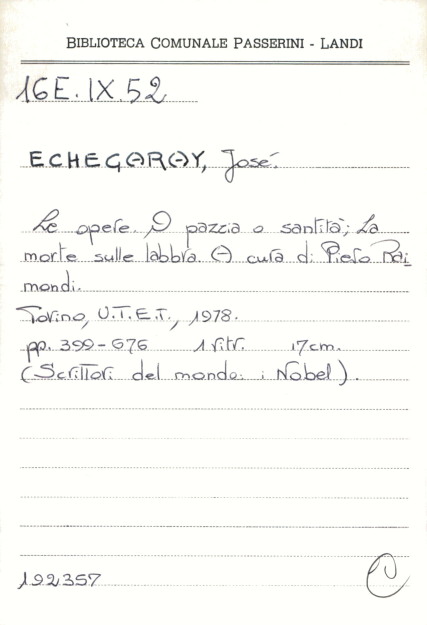 BIBLIOTECA COMUNALE PASSERINI - LANDI
16E.IX.52
ECHEGARAY, José.
Le opere. O pazzia o santità; La
morte sulle labbra. A cura di Piero Rai
mondi.
Torino, U.T.E.T., 1978.
pp. 399-676 1 ritr. 17cm.
(Scrittori del mondo: i Nobel).
192357